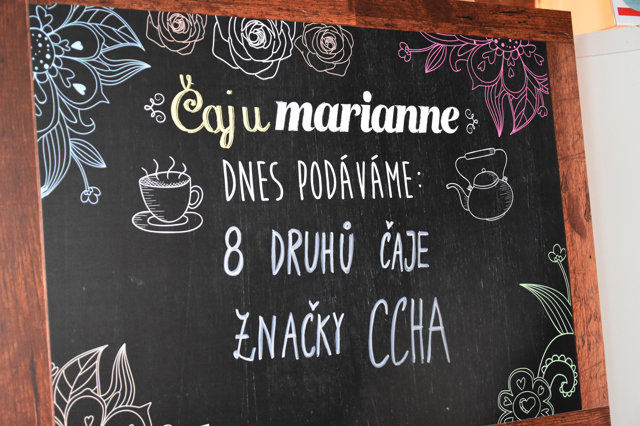 Čaj u marianne
DNES PODÁVÁME:
8 DRUHŮ ČAJE
ZNAČKY CCHA